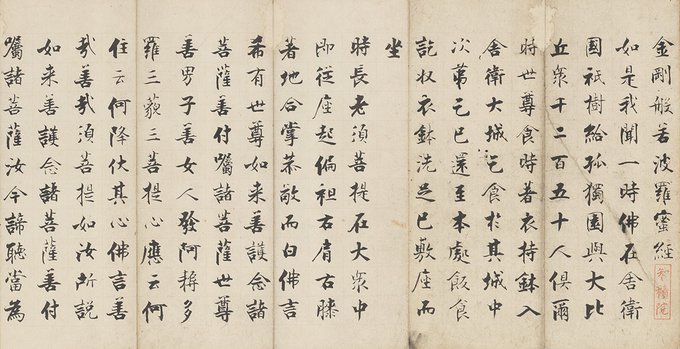 金剛般若波羅蜜經
如是我聞一時佛在舍衛
國祇樹給孤獨園與大比
丘衆千二百五十人俱爾
時世尊食時著衣持鉢入
舍衛大城乞食於其城中
次第乞已還至本處飯食
訖收衣鉢洗足已敷座而
坐
時長老須菩提在大衆中
即從座起偏袒右肩右膝
著地合掌恭敬而白佛言
希有世尊如来善護念諸
菩薩善付囑諸菩薩世尊
善男子善女人發阿耨多
羅三藐三菩提心應云何
住云何降伏其心佛言善
哉善哉須菩提如汝所說
如来善護念諸菩薩善付
囑諸菩薩汝今諦聽當為